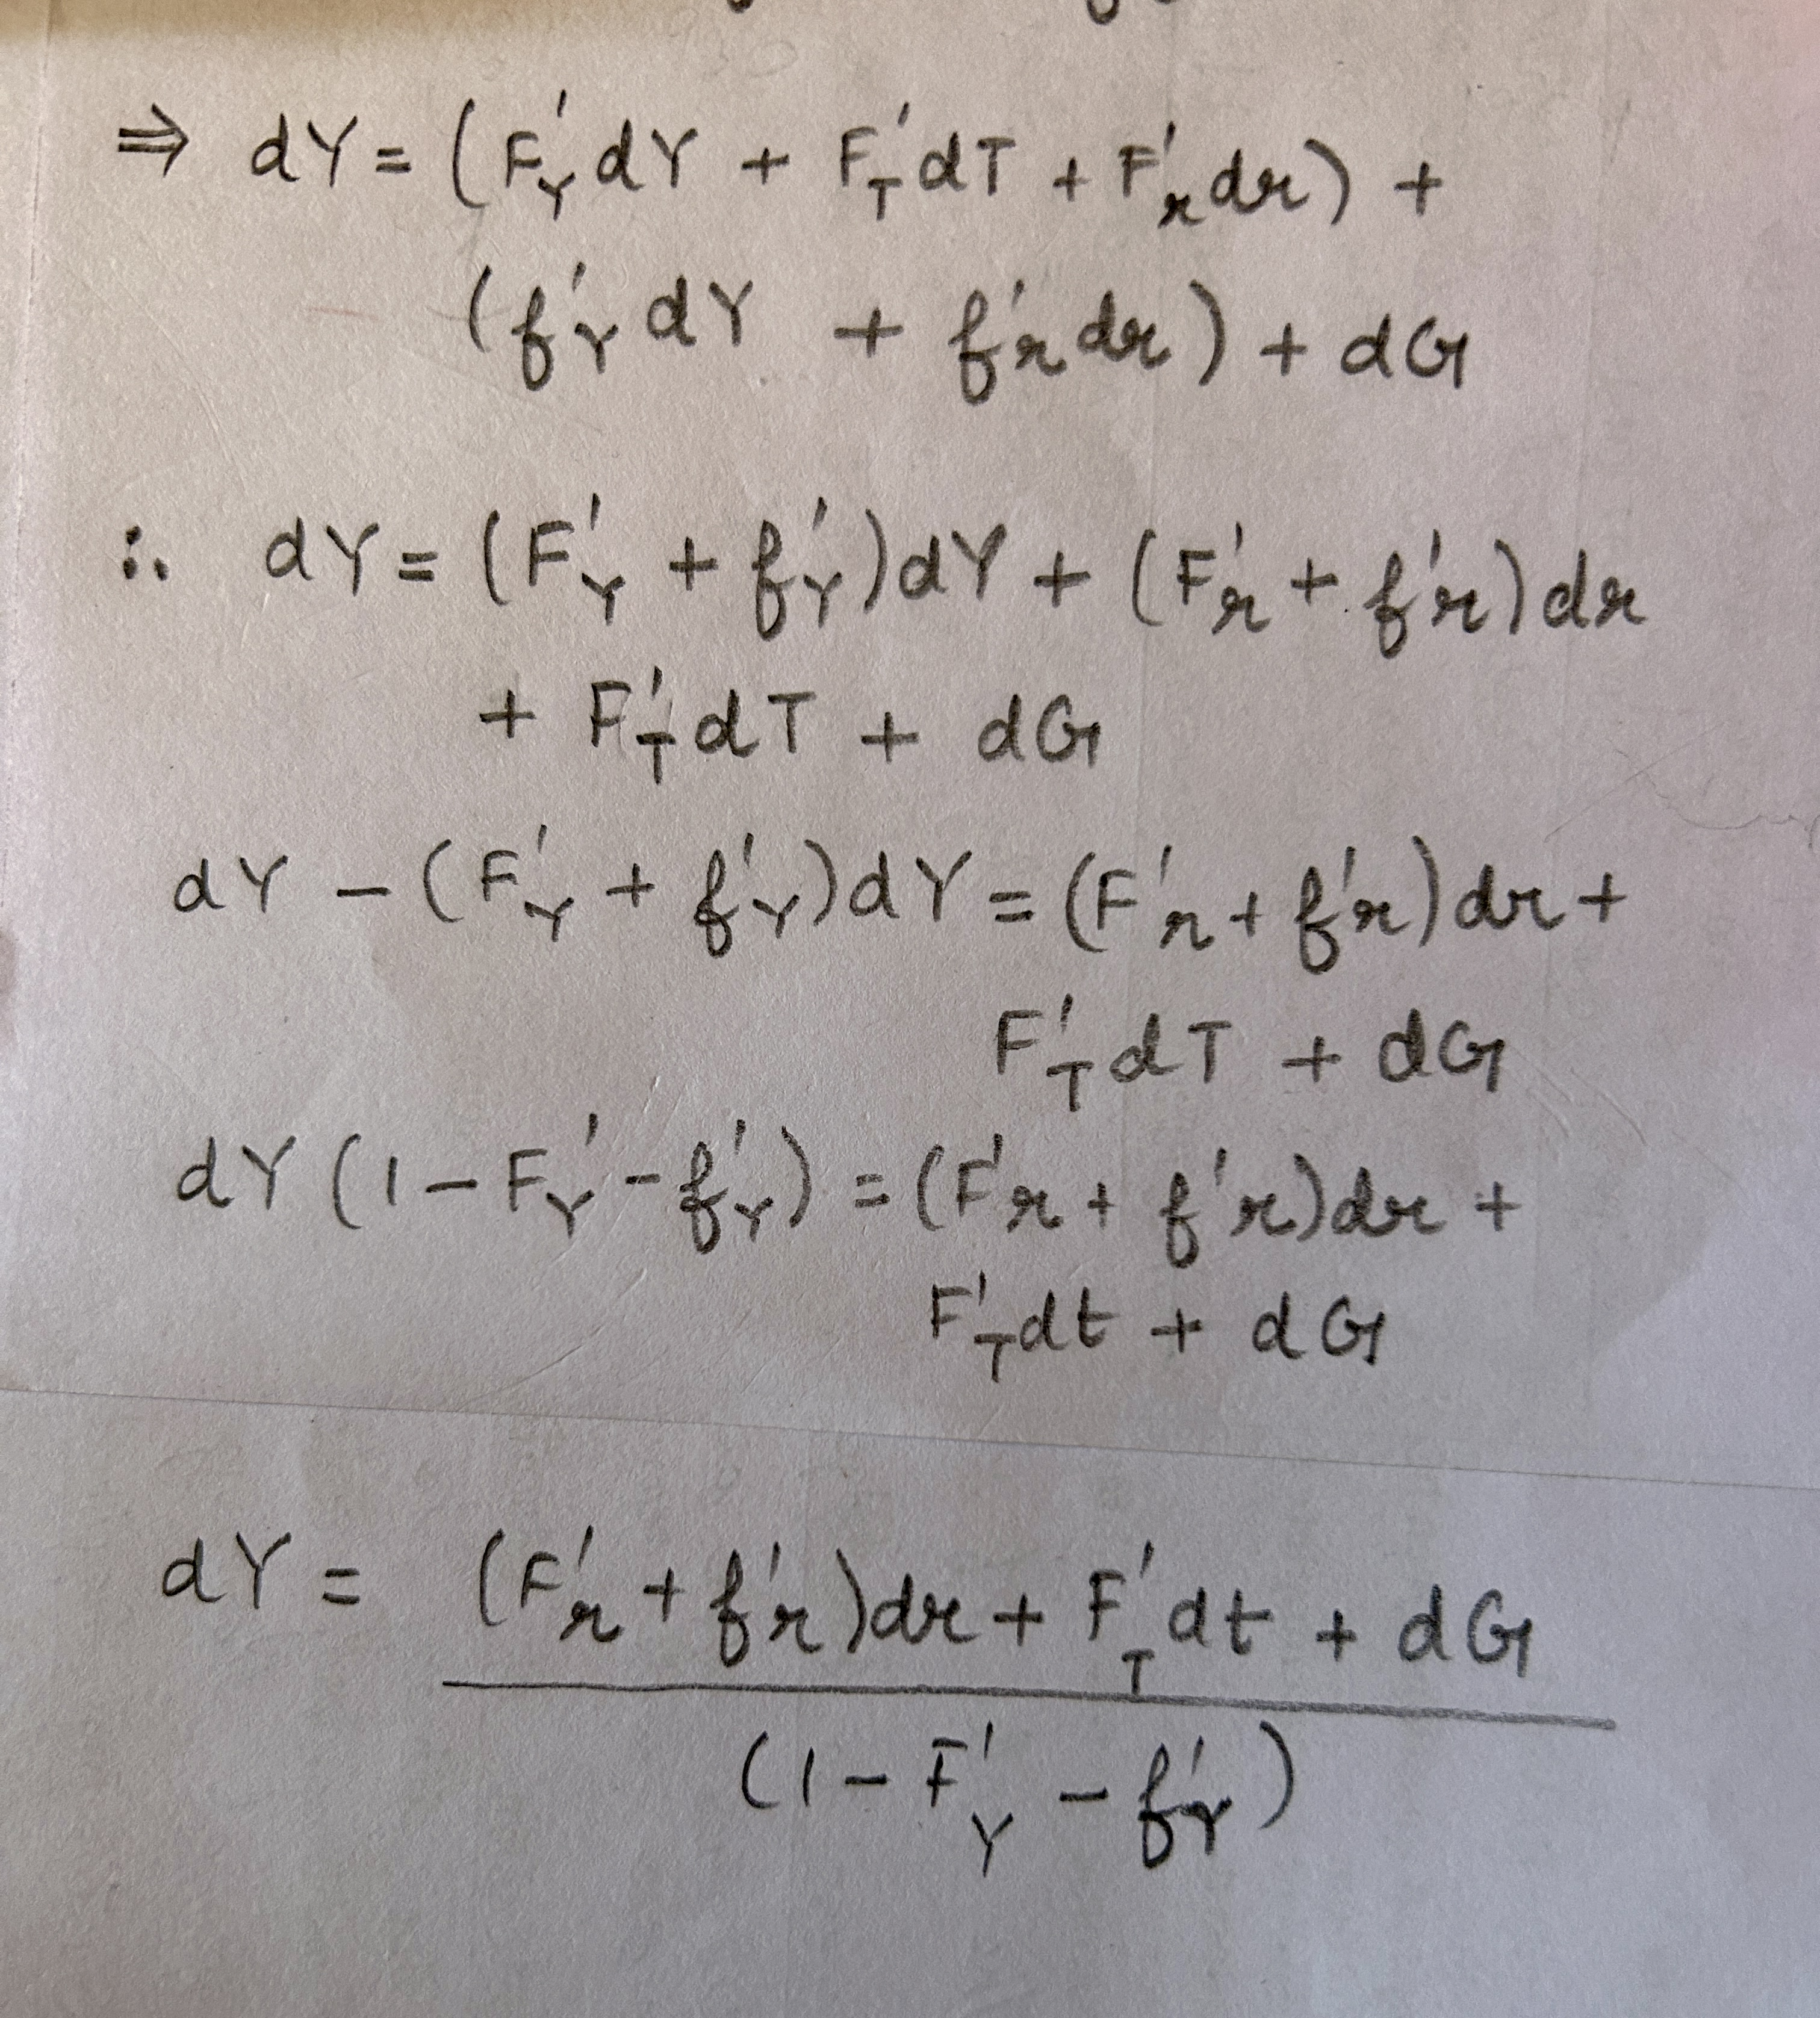 ⇒ dY = (F'_Y dY + F'_T dT + F'_r dr) +
(f'_Y dY + f'_r dr) + dG
∴ dY = (F'_Y + f'_Y)dY + (F'_r + f'_r)dr
+ F'_T dT + dG
dY − (F'_Y + f'_Y)dY = (F'_r + f'_r)dr +
F'_T dT + dG
dY (1 − F'_Y − f'_Y) = (F'r + f'r)dr +
F'_T dt + dG
dY = (F'_r + f'_r)dr + F'_T dt + dG
(1 − F'_Y − f'_Y)